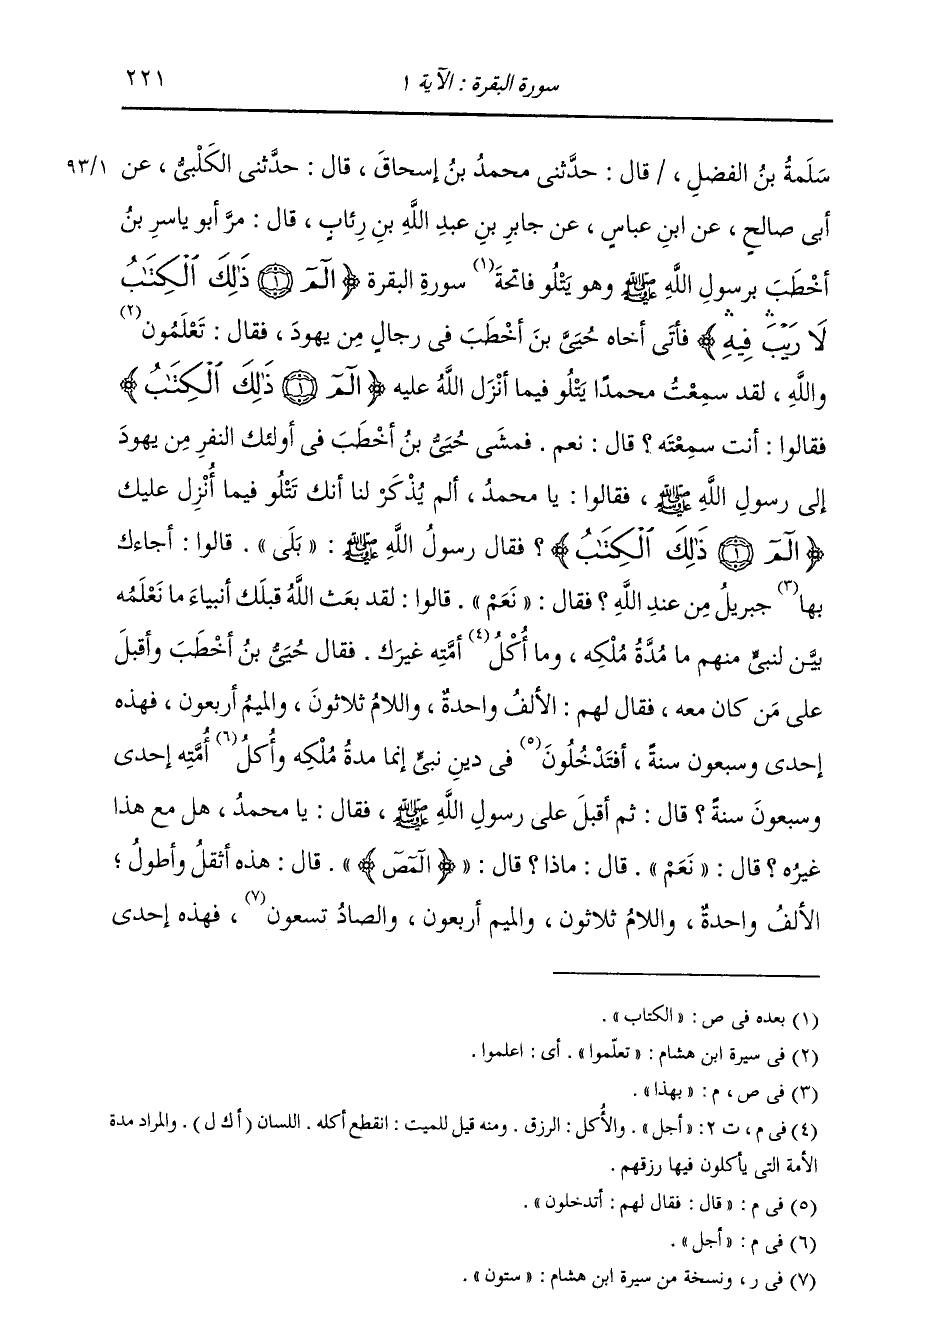 سورة البقرة : الآية ١ ٢٢١
سَلَمةُ بنُ الفضلِ ، / قال : حدَّثنى محمدُ بنُ إسحاقَ ، قال : حدَّثنى الكَلْبىُّ ، عن ٩٣/١
أبى صالحٍ ، عن ابنِ عباسٍ ، عن جابرِ بنِ عبدِ اللَّهِ بنِ رِئابٍ ، قال : مرَّ أبو ياسرِ بنُ
أخْطَبَ برسولِ اللَّهِ ﷺ وهو يَتْلُو فاتحةَ(١) سورةِ البقرة ﴿ الٓمٓ ۝١ ذَٰلِكَ ٱلْكِتَٰبُ
لَا رَيْبَۛ فِيهِۛ ﴾ فأتَى أخاه حُيَىَّ بنَ أخْطَبَ فى رجالٍ مِن يهودَ ، فقال : تَعْلَمُون(٢)
واللَّهِ ، لقد سمِعْتُ محمدًا يَتْلُو فيما أنْزَل اللَّهُ عليه ﴿ الٓمٓ ۝١ ذَٰلِكَ ٱلْكِتَٰبُ ﴾
فقالوا : أنت سمِعْتَه ؟ قال : نعم . فمشَى حُيَىُّ بنُ أخْطَبَ فى أولئك النفرِ مِن يهودَ
إلى رسولِ اللَّهِ ﷺ ، فقالوا : يا محمدُ ، ألم يُذْكَرْ لنا أنك تَتْلُو فيما أُنْزِل عليك
﴿ الٓمٓ ۝١ ذَٰلِكَ ٱلْكِتَٰبُ ﴾ ؟ فقال رسولُ اللَّهِ ﷺ : « بَلَى » . قالوا : أجاءك
بها(٣) جبريلُ مِن عندِ اللَّهِ ؟ فقال : « نَعَمْ » . قالوا : لقد بعَث اللَّهُ قبلَك أنبياءَ ما نَعْلَمُه
بيَّن لنبىٍّ منهم ما مُدَّةُ مُلْكِه ، وما أُكْلُ(٤) أمَّتِه غيرَك . فقال حُيَىُّ بنُ أخْطَبَ وأقبلَ
على مَن كان معه ، فقال لهم : الألفُ واحدةٌ ، واللامُ ثلاثونَ ، والميمُ أربعون ، فهذه
إحدى وسبعون سنةً ، أفتَدْخُلُونَ(٥) فى دينِ نبىٍّ إنما مدةُ مُلْكِه وأُكلُ(٦) أُمَّتِه إحدى
وسبعونَ سنةً ؟ قال : ثم أقبلَ على رسولِ اللَّهِ ﷺ ، فقال : يا محمدُ ، هل مع هذا
غيرُه ؟ قال : « نَعَمْ » . قال : ماذا ؟ قال : « ﴿ الٓمٓصٓ ﴾ » . قال : هذه أثقلُ وأطولُ ؛
الألفُ واحدةٌ ، واللامُ ثلاثون ، والميم أربعون ، والصادُ تسعون(٧) ، فهذه إحدى
(١) بعده فى ص : « الكتاب » .
(٢) فى سيرة ابن هشام : « تعلّموا » . أى : اعلموا .
(٣) فى ص ، م : « بهذا » .
(٤) فى م ، ت ٢: « أجل » . والأُكل : الرزق . ومنه قيل للميت : انقطع أكله . اللسان ( أ ك ل ) . والمراد مدة
الأمة التى يأكلون فيها رزقهم .
(٥) فى م : « قال : فقال لهم : أتدخلون » .
(٦) فى م : « أجل » .
(٧) فى ر ، ونسخة من سيرة ابن هشام : « ستون » .